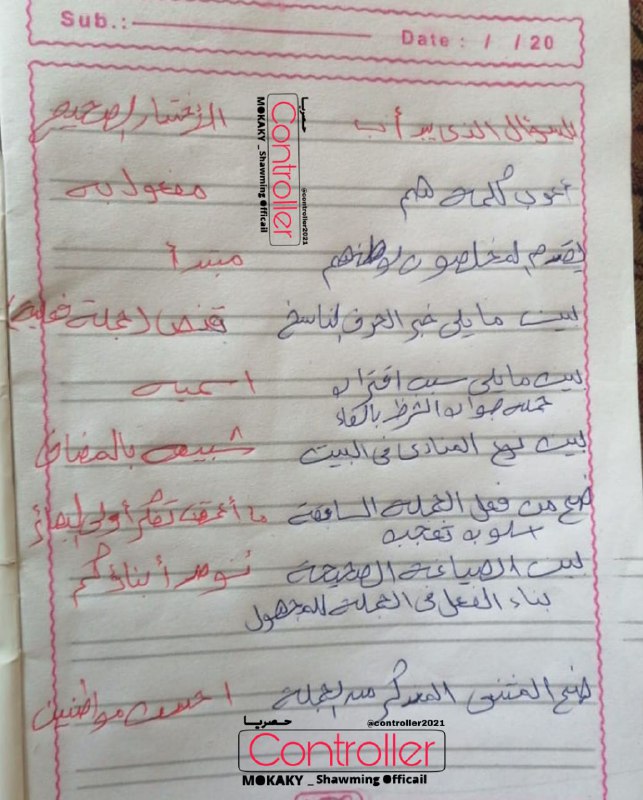 Sub.:
Date : / /20
السؤال الذي يبدأ ب الاختيار الصحيح
أعرب كلمة هم مفعول به
يقدم المخلصون لوطنهم مبتدأ
بين ما يلي خبر الحرف الناسخ قنص (جملة فعلية)
بين ما يلي سبب اقتران اسمية
جملة جواب الشرط بالفاء
بين نوع المنادى في البيت شبيه بالمضاف
ضع من فعل الجملة السابقة ما أعمق تفكر أولي البصائر
أسلوب تعجب
بين الصياغة الصحيحة أبناؤكم
بناء الفعل في الجملة للمجهول
ضع المثنى المذكر من الجملة أحسن مواطنين
حصريا
Controller
@controller2021
MOKAKY _ Shawming Officail
حصريا
@controller2021
Controller
MOKAKY _ Shawming Officail